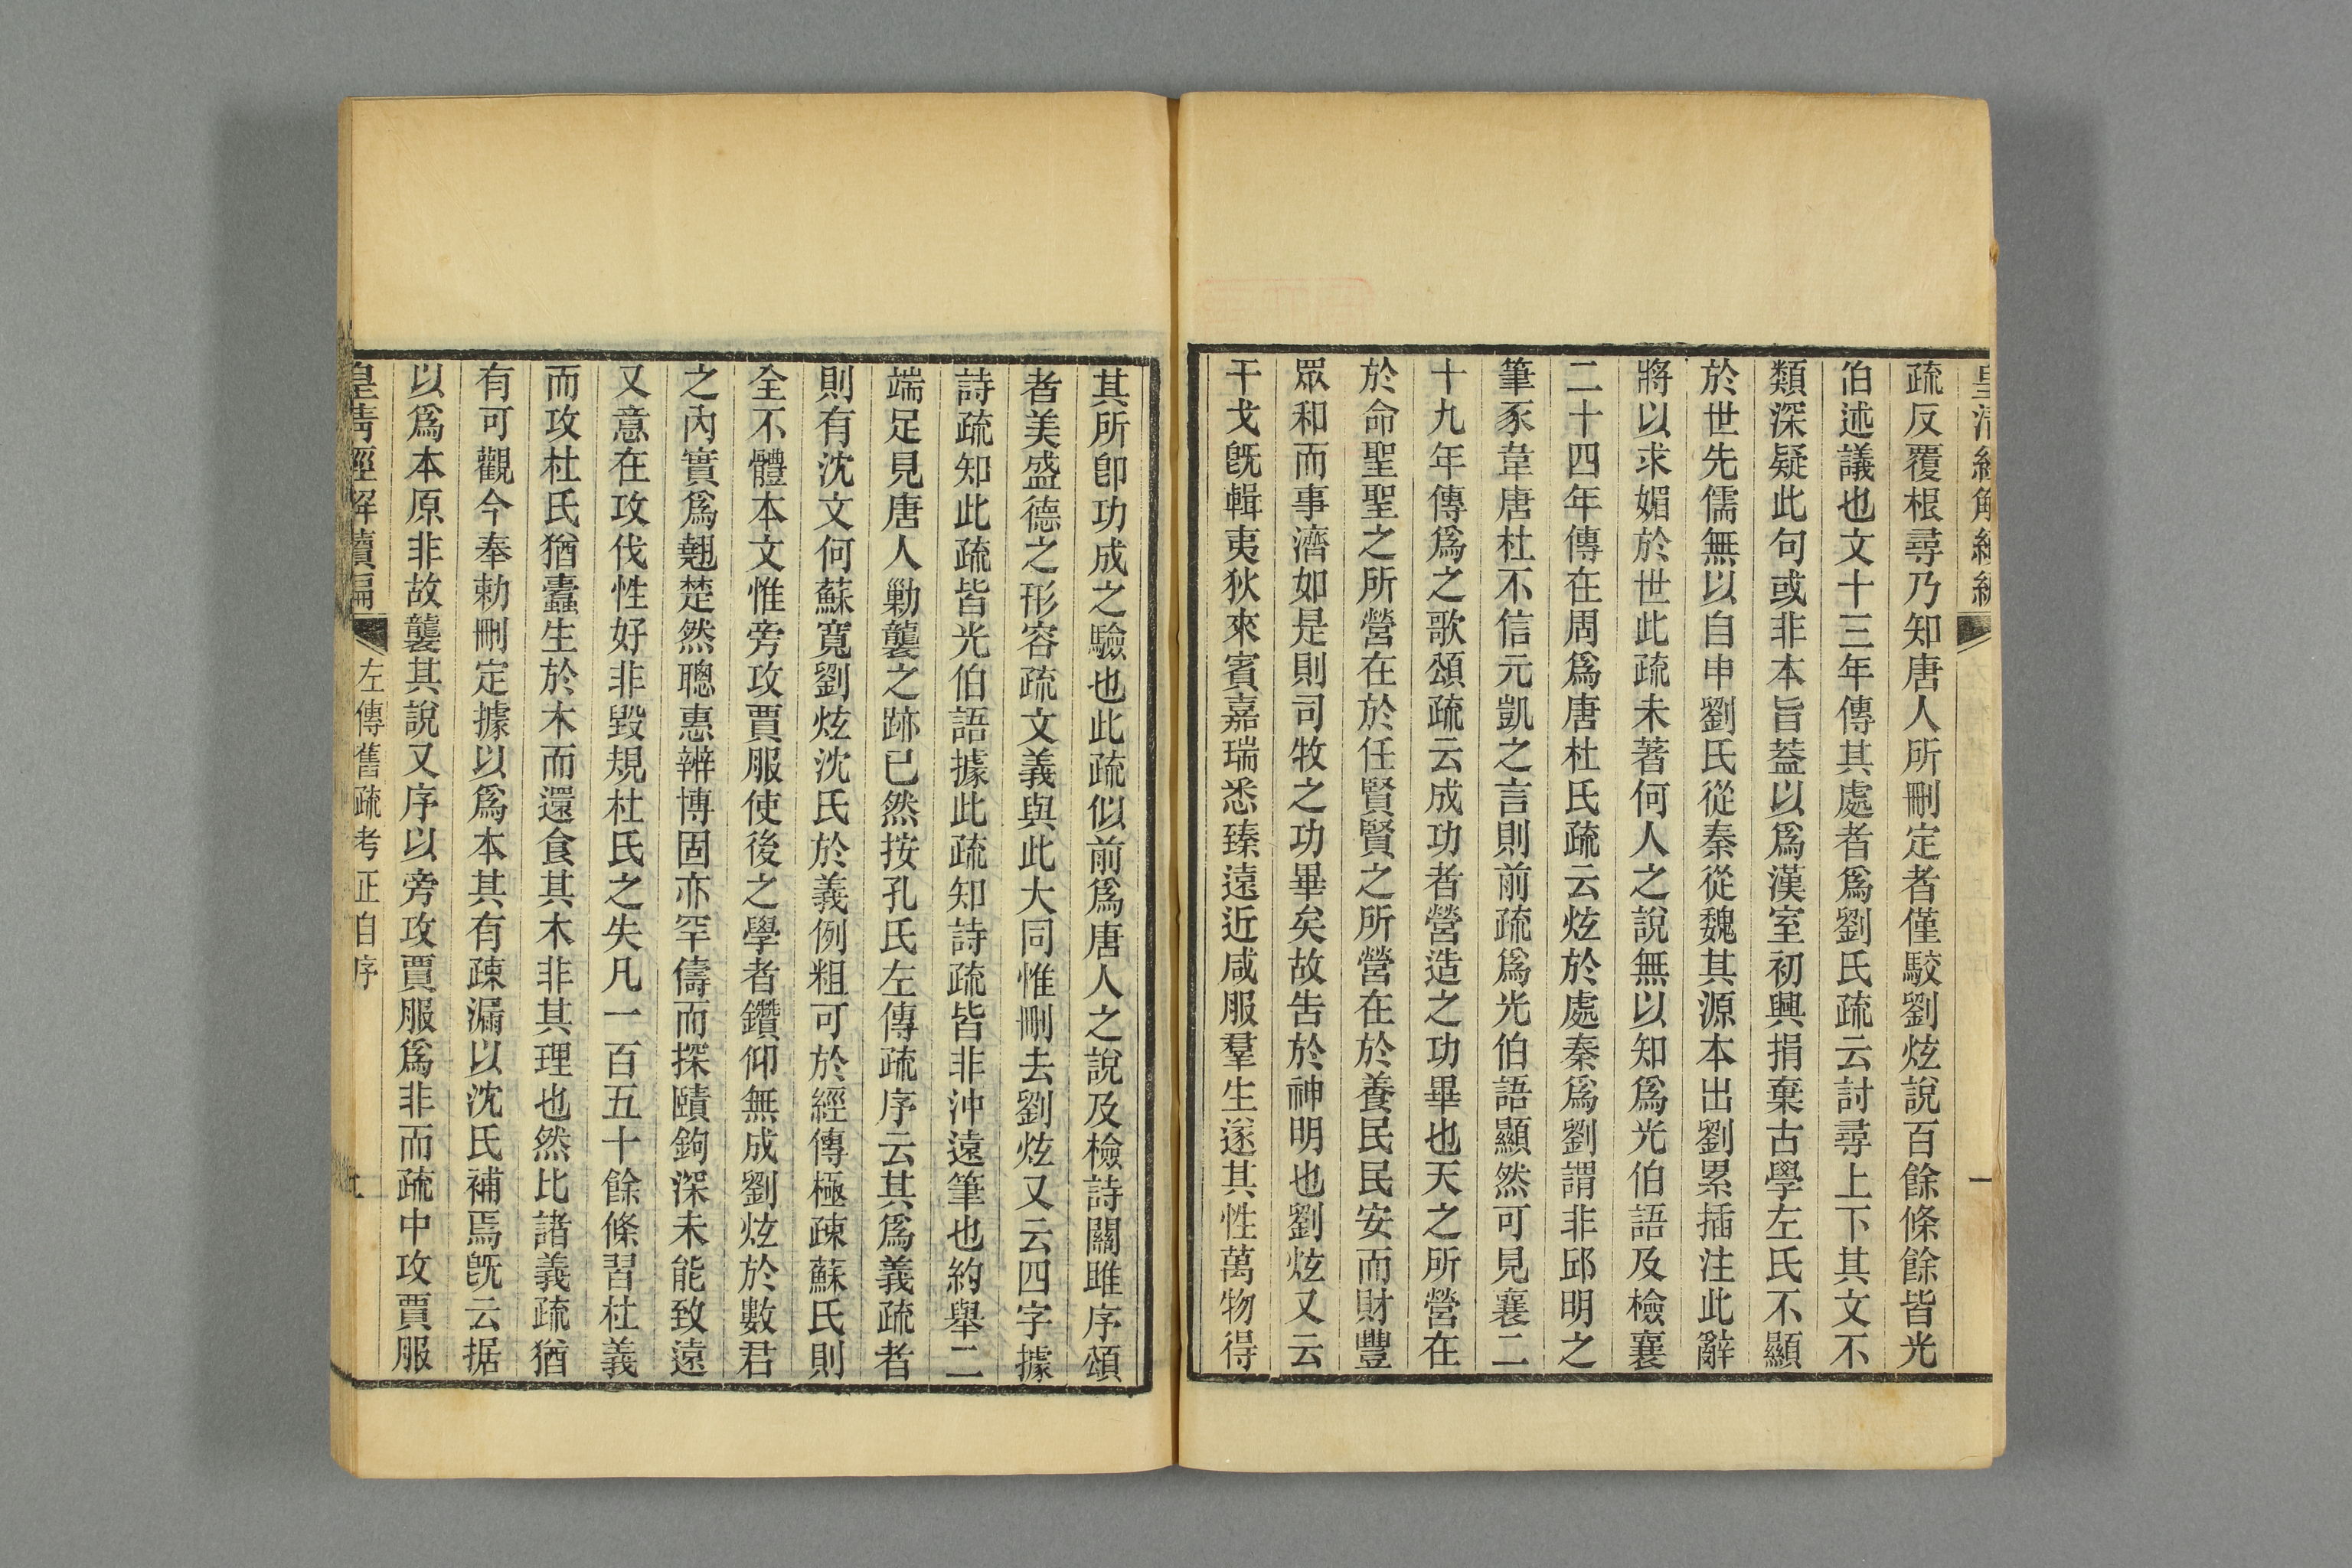 皇清經解續編
疏反覆根尋乃知唐人所刪定者僅駮劉炫說百餘條餘皆光
伯述議也文十三年傳其處者爲劉氏疏云討尋上下其文不
類深疑此句或非本旨葢以爲漢室初興捐棄古學左氏不顯
於世先儒無以自申劉氏從秦從魏其源本出劉累插注此辭
將以求媚於世此疏未著何人之說無以知爲光伯語及檢襄
二十四年傳在周爲唐杜氏疏云炫於處秦爲劉謂非邱明之
筆豕韋唐杜不信元凱之言則前疏爲光伯語顯然可見襄二
十九年傳爲之歌頌疏云成功者營造之功畢也天之所營在
於命聖聖之所營在於任賢賢之所營在於養民民安而財豐
眾和而事濟如是則司牧之功畢矣故告於神明也劉炫又云
干戈旣輯夷狄來賓嘉瑞悉臻遠近咸服羣生遂其性萬物得
其所卽功成之驗也此疏似前爲唐人之說及檢詩關雎序頌
者美盛德之形容疏文義與此大同惟刪去劉炫又云四字據
詩疏知此疏皆光伯語據此疏知詩疏皆非沖遠筆也約舉二
端足見唐人勦襲之跡已然按孔氏左傳疏序云其爲義疏者
則有沈文何蘇寬劉炫沈氏於義例粗可於經傳極疎蘇氏則
全不體本文惟旁攻賈服使後之學者鑽仰無成劉炫於數君
之內實爲翹楚然聰惠辨博固亦罕儔而探賾鉤深未能致遠
又意在攻伐性好非毀規杜氏之失凡一百五十餘條習杜義
而攻杜氏猶蠹生於木而還食其木非其理也然比諸義疏猶
有可觀今奉勅刪定據以爲本其有疎漏以沈氏補焉旣云据
以爲本原非故襲其說又序以旁攻賈服爲非而疏中攻賈服
皇清經解續編 左傳舊疏考正自序